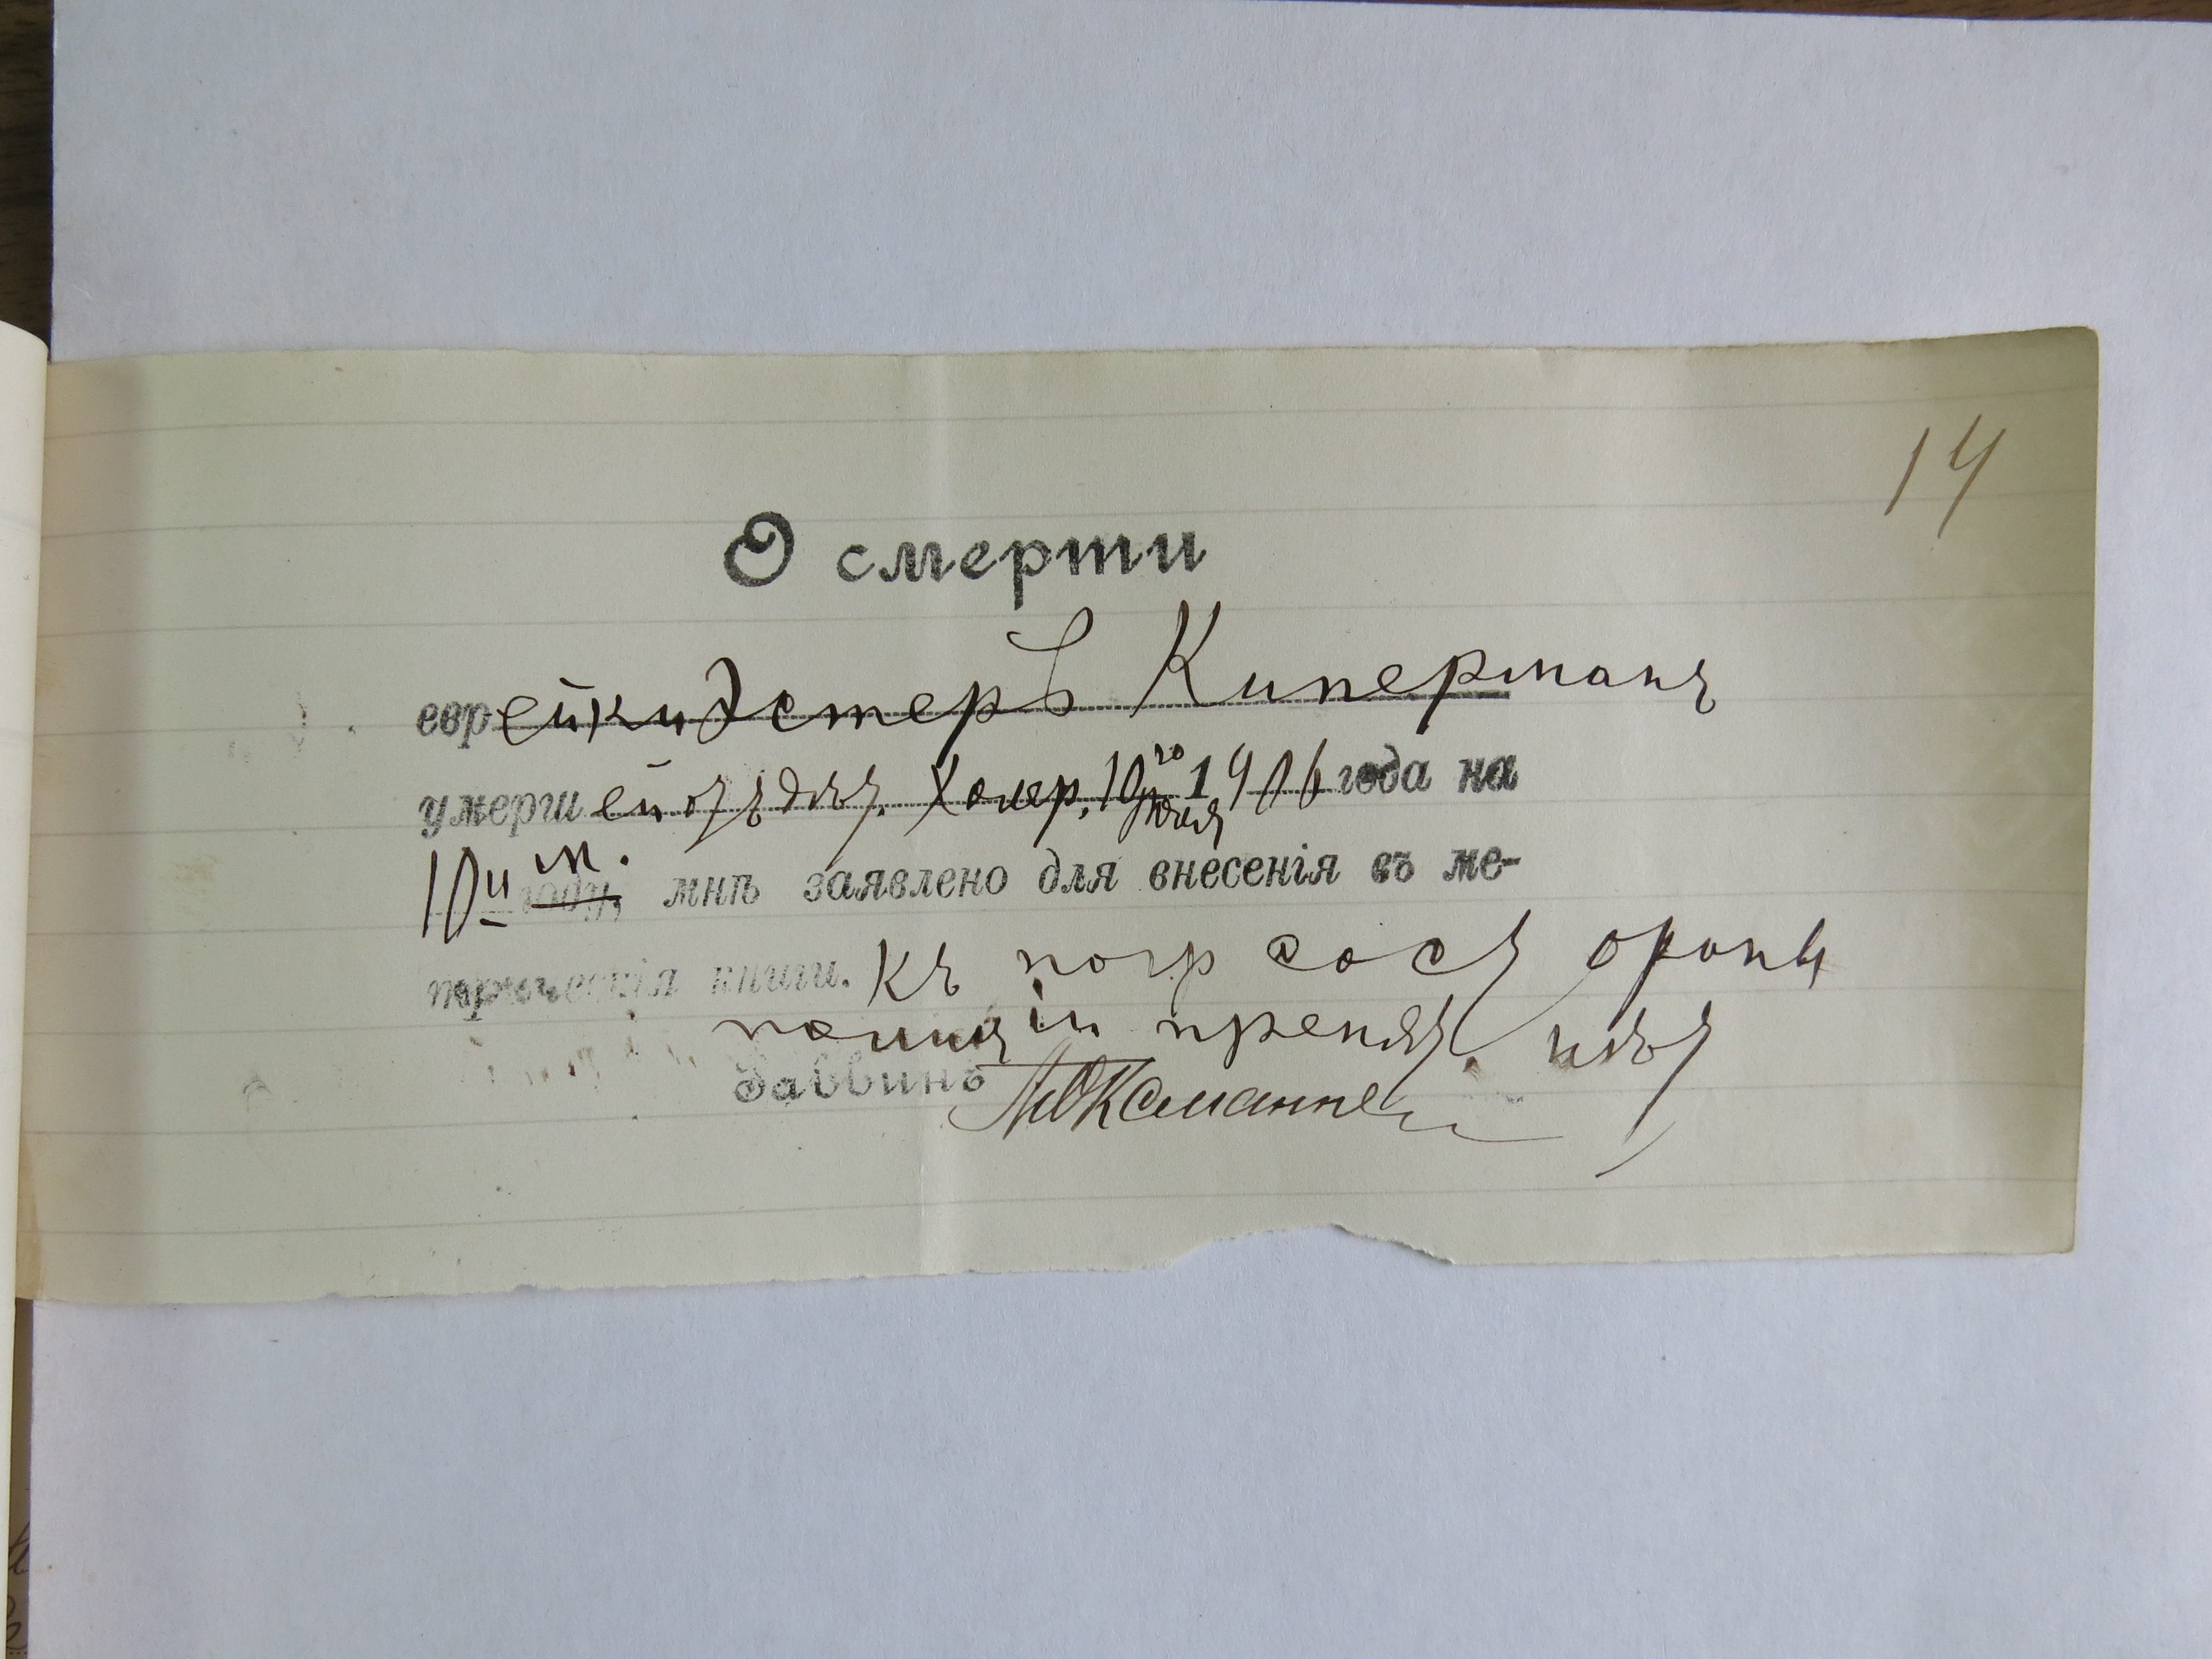 14
О смерти
еврейки Эстеръ Киперманъ
умершей отъ дѣт. холер. 10го Июля 1906 года на
10 м. году, мнѣ заявлено для внесенія въ ме-
трическія книги. Къ погр со стороны
полиціи препят. нѣтъ
Раввинъ